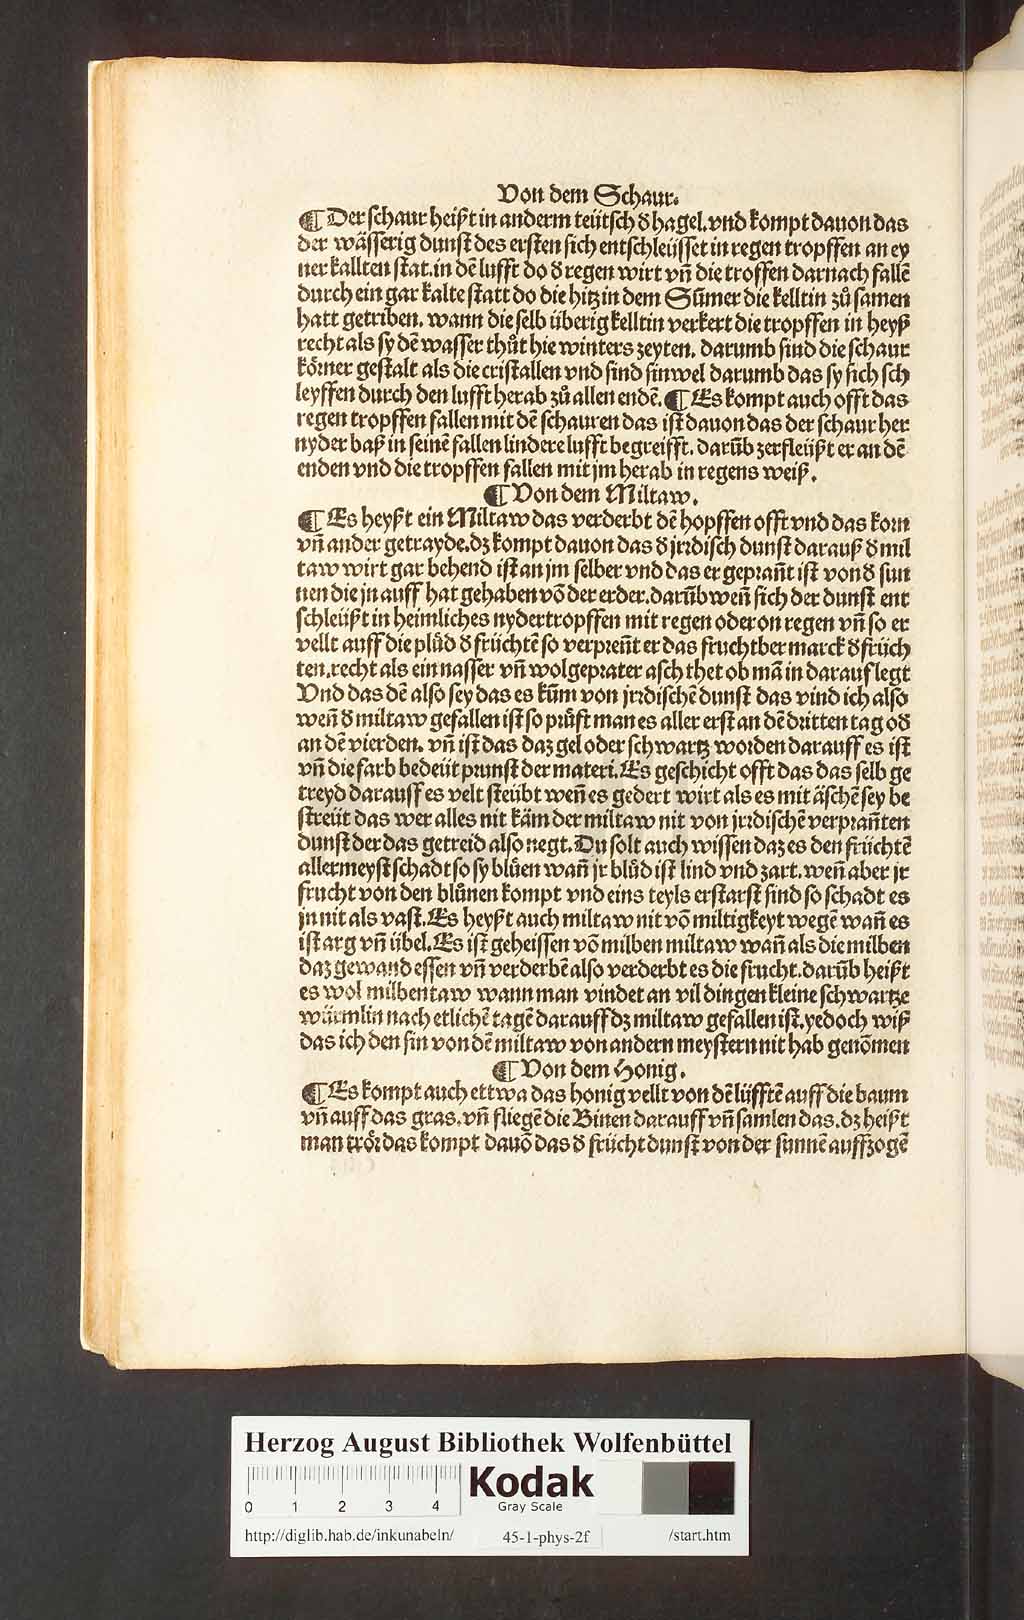 Von dem Schaur.
¶ Der schaur heißt in anderm teütsch d̕ hagel. vnd kompt dauon das
der wässerig dunst des ersten sich entschleüsset in regen tropffen an ey
ner kallten stat. in dē lufft do d̕ regen wirt vn̄ die troffen darnach fallē
durch ein gar kalte statt do die hitz in dem Sūmer die kelltin zů samen
hatt getriben. wann die selb überig kelltin verkert die tropffen in heyß
recht als sy dē wasser thůt hie winters zeyten. darumb sind die schaur
koͤrner gestalt als die cristallen vnd sind sinwel darumb das sy sich sch
leyffen durch den lufft herab zů allen endē. ¶ Es kompt auch offt das
regen tropffen fallen mit dē schauren das ist dauon das der schaur her
nyder baß in seinē fallen lindere lufft begreifft. darūb zerfleüßt er an dē
enden vnd die tropffen fallen mit jm herab in regens weiß.
¶ Von dem Miltaw.
¶ Es heyßt ein Miltaw das verderbt dē hopffen offt vnd das korn
vn̄ ander getrayde. dz kompt dauon das d̕ jrrdisch dunst darauß d̕ mil
taw wirt gar behend ist an jm selber vnd das er geprañt ist von d̕ sun
nen die jn auff hat gehaben vō der erder. darūb weñ sich der dunst ent
schleüßt in heimliches nydertropffen mit regen oder on regen vn̄ so er
vellt auff die plůd d̕ früchtē so verpreñt er das fruchtber marck d̕ früch
ten. recht als ein nasser vn̄ wolgeprater asch thet ob mā in darauf legt
Vnd das dē also sey das es kūm von jrrdischē dunst das vind ich also
weñ d̕ miltaw gefallen ist so prüft man es aller erst an dē dritten tag od̕
an dē vierden. vn̄ ist das daz gel oder schwartz worden darauff es ist
vn̄ die farb bedeüt prunst der materi. Es geschicht offt das das selb ge
treyd darauff es velt steübt weñ es gedert wirt als es mit äschē sey be
streüt das wer alles nit käm der miltaw nit von jrrdischē verprañten
dunst der das getreid also negt. Du solt auch wissen daz es den früchtē
allermeyst schadt so sy blůen wañ jr blůd ist lind vnd zart. weñ aber jr
frucht von den blůnen kompt vnd eins teyls erstarst sind so schadt es
jn nit als vast. Es heyßt auch miltaw nit vō miltigkeyt wegē wañ es
ist arg vn̄ übel. Es ist geheissen vō milben miltaw wañ als die milben
daz gewand essen vn̄ verderbē also verderbt es die frucht. darūb heißt
es wol milbentaw wann man vindet an vil dingen kleine schwartze
würmlin nach etlichē tagē darauff dz miltaw gefallen ist. yedoch wiß
das ich den sin von dē miltaw von andern meystern nit hab genōmen
¶ Von dem Honig.
¶ Es kompt auch ettwa das honig vellt von dē lüfftē auff die baum
vn̄ auff das gras. vn̄ fliegē die Binen darauff vn̄ samlen das. dz heißt
man trör das kompt dauō das d̕ frücht dunst von der sunnē auffzogē
Herzog August Bibliothek Wolfenbüttel
0 1 2 3 4
Kodak
Gray Scale
http://diglib.hab.de/inkunabeln/ 45-1-phys-2f /start.htm